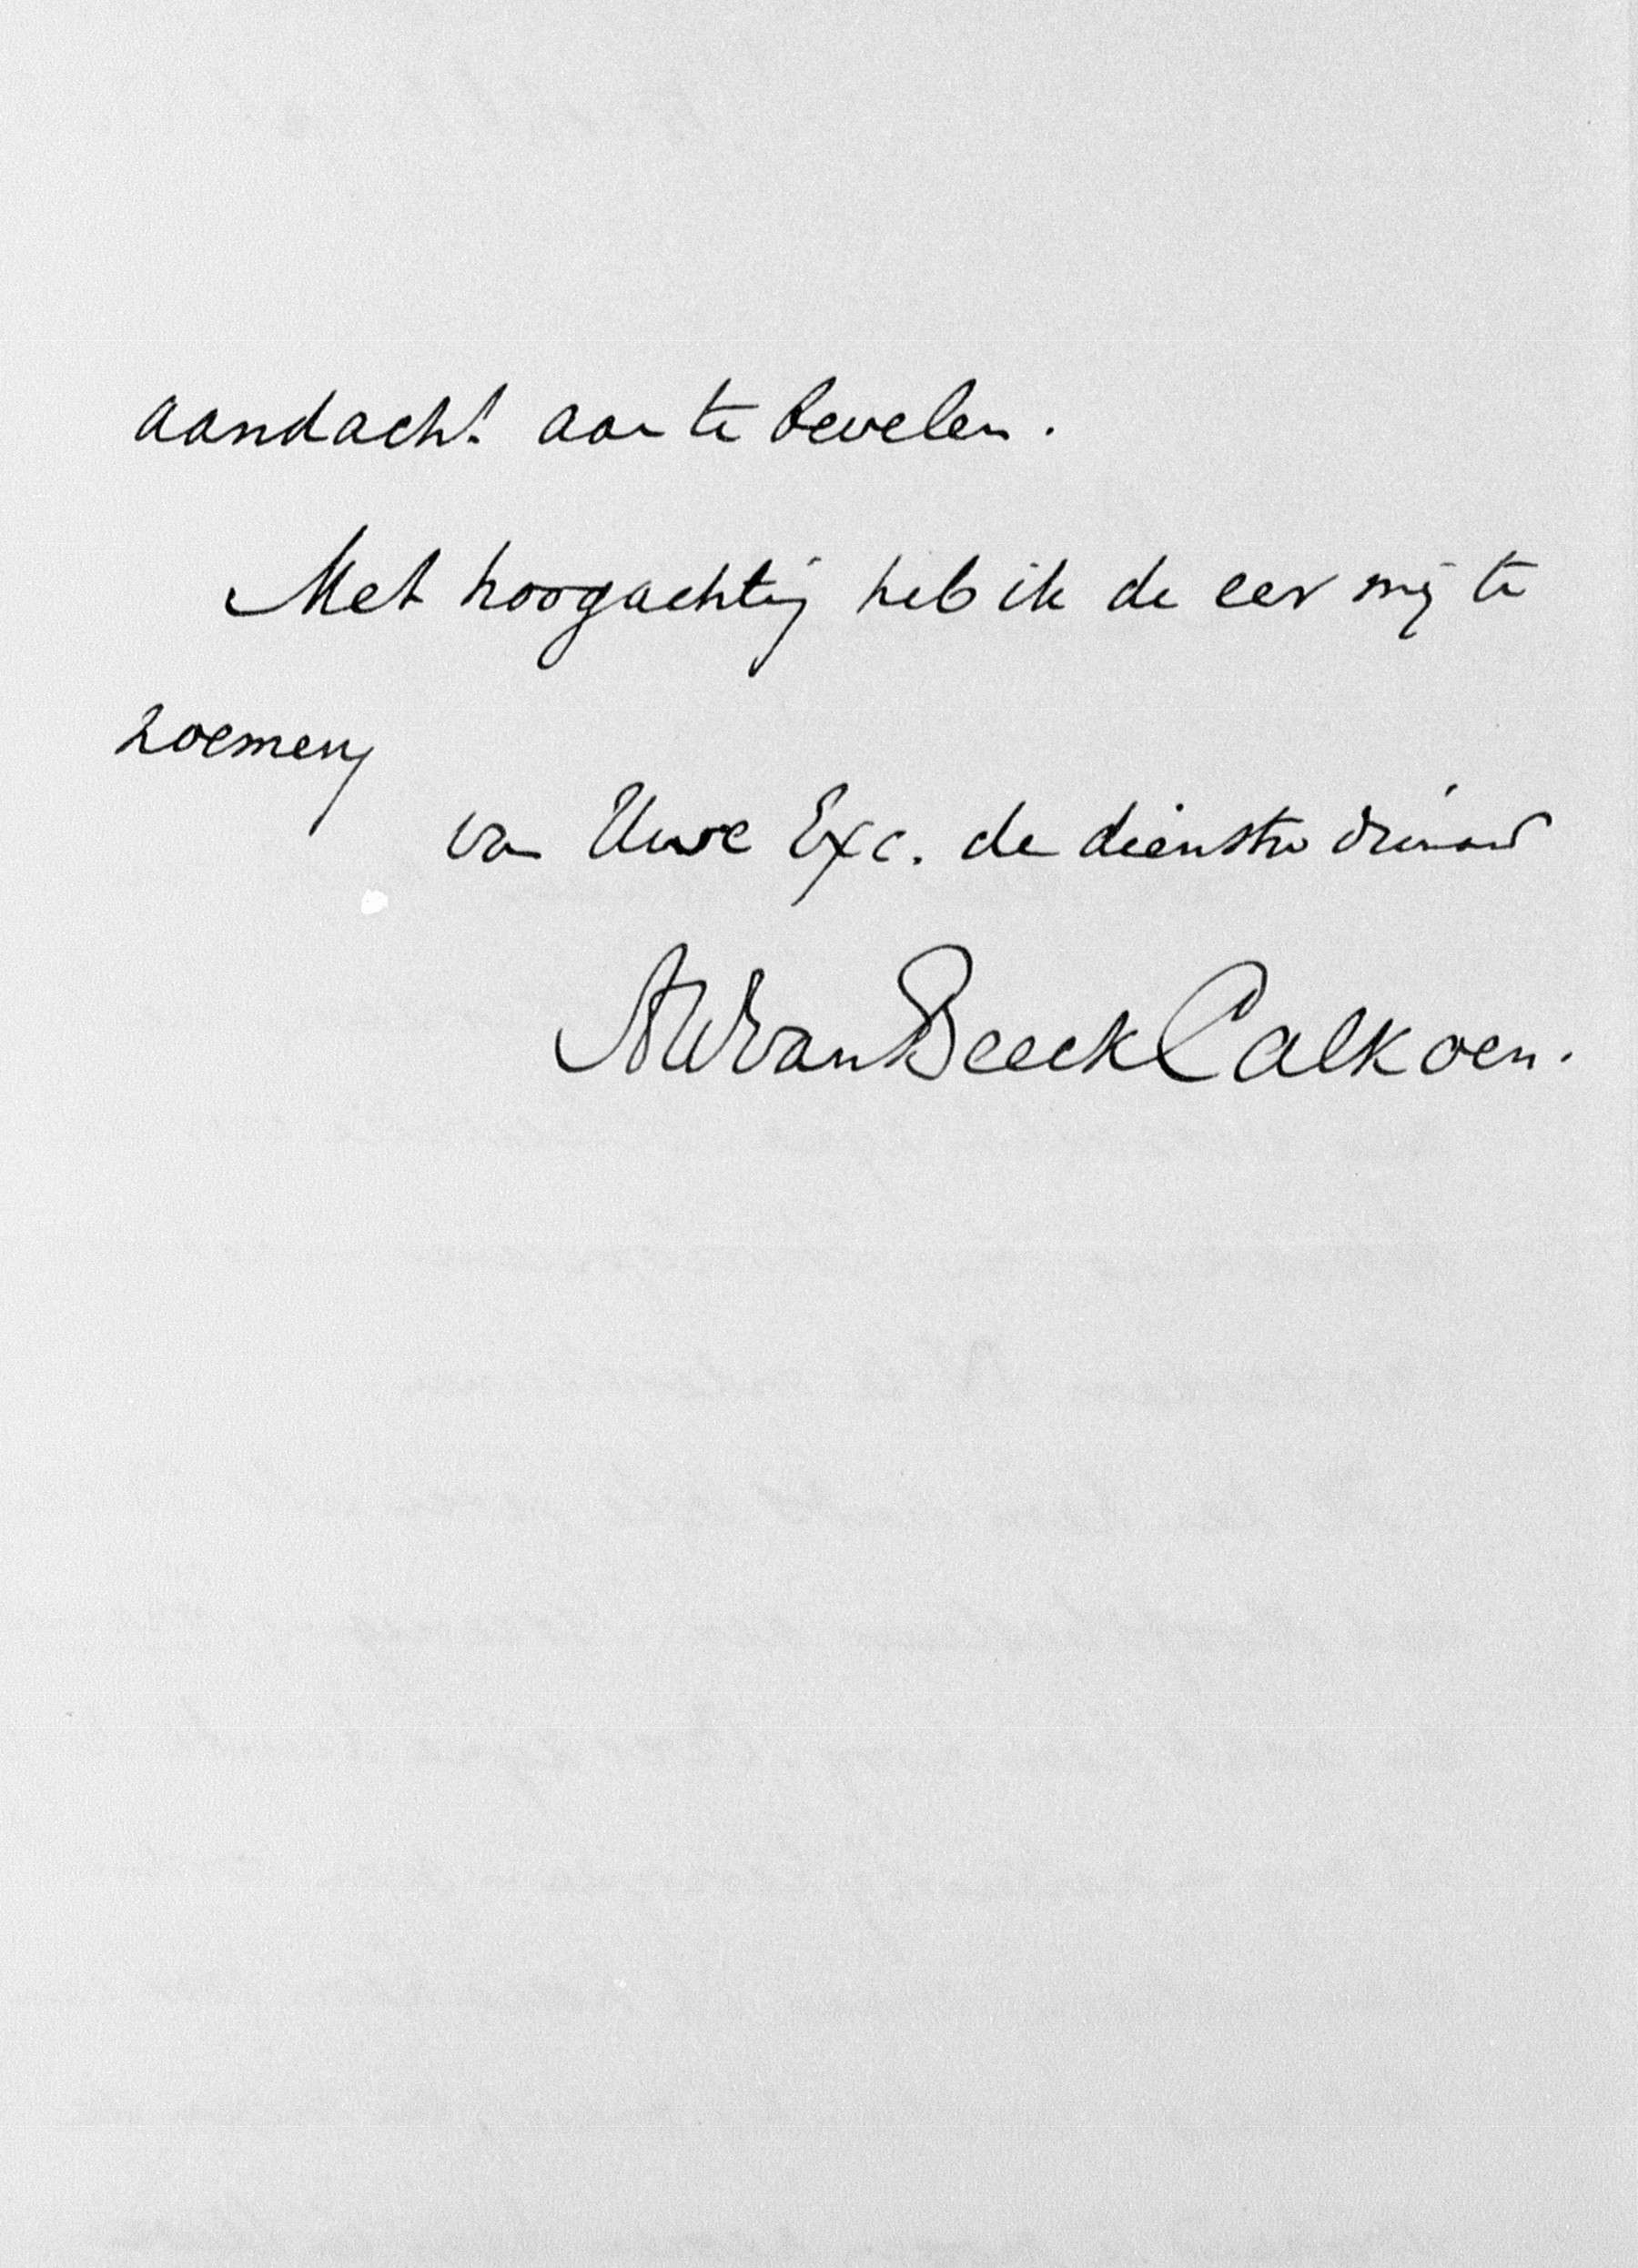 aandacht aan te bevelen.
Met hoogachting heb ik de eer mij te
noemen
van Uwe Exc. de dienstw dienaar
AW van Beeck Calkoen.